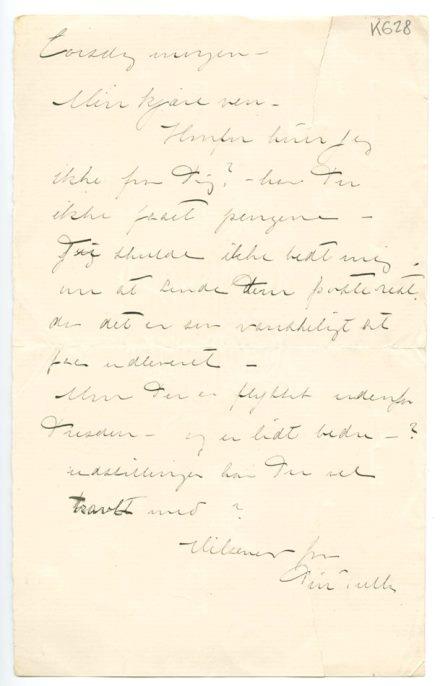 K628
Torsdag morgen –
Min kjære ven –
Hvorfor hører jeg
ikke fra Dig? – har Du
ikke faaet pengene –
Du skulde ikke bedt mig
om at sende dem poste rest.
da det er saa vanskeligt at
faa udleveret –
Men Du er flyttet udenfor
Dresden – og er lidt bedre – ?
udstillinger har Du vel
travlt med ?
Hilsener fra
Din Tulla